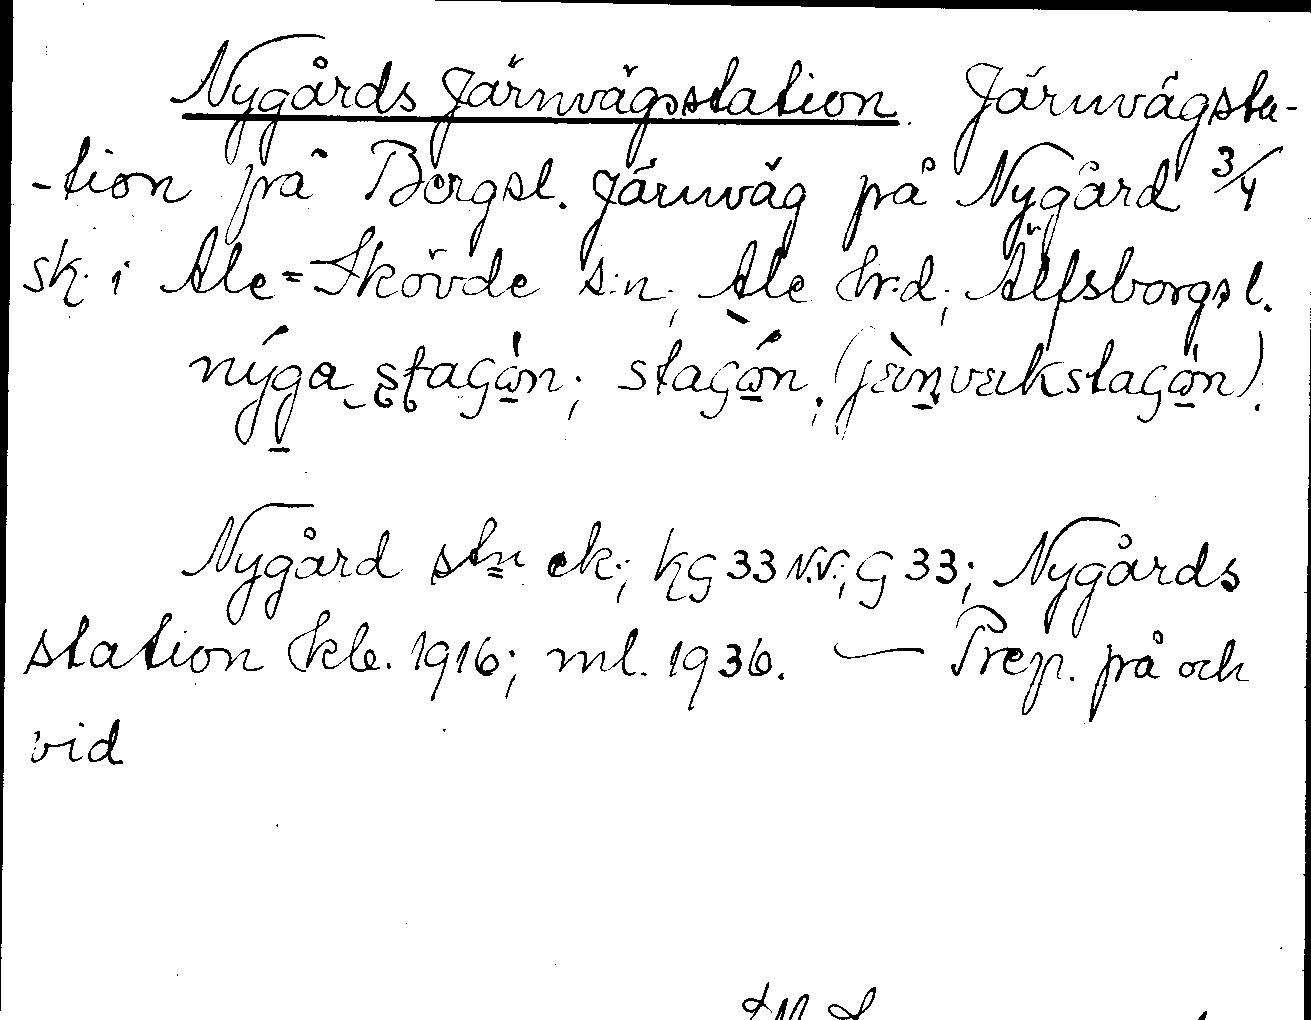 Nygårds Järnvägsstation. Järnvägsta-
-tion på Bergsl. Järnväg på Nygård 3/4
sk. i Ale=Skövde s:n; Ale hr:d; Älfsborgs l.
nýga staçån; staçån. (jèrnvækstaçån).
Nygård stn ek; kG 33 N.V.; G 33; Nygårds
station tkb. 1916; ml. 1936. — Prep. på och
vid